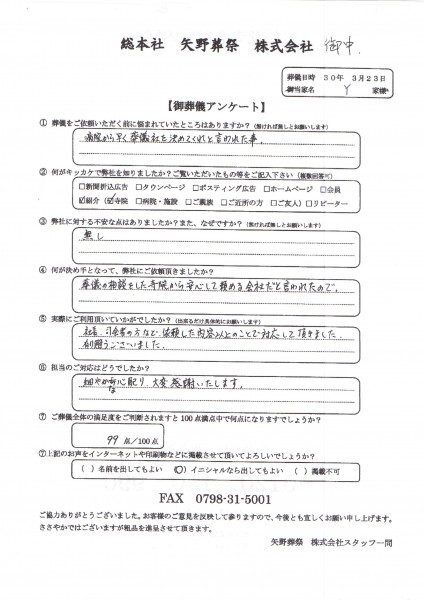 総本社 矢野葬祭 株式会社 御中
葬儀日時 30年 3月23日
御当家名 Y 家様
【御葬儀アンケート】
① 葬儀をご依頼いただく前に悩まれていたところはありますか?(無ければ無しとお願いします)
病院から早く葬儀社を決めてくれと言われた事。
② 何がキッカケで弊社を知りましたか?ご覧いただいたもの等をご記入下さい(複数回答可)
□新聞折込広告 □タウンページ □ポスティング広告 □ホームページ □会員
☑紹介 ☑寺院 □病院・施設 □ご親族 □ご近所の方 □ご友人 □リピーター
③ 弊社に対する不安な点はありましたか?また、なぜですか?(無ければ無しとお願いします)
無し
④ 何が決め手となって、弊社にご依頼頂きましたか?
葬儀の相談をした寺院から安心して頼める会社だと言われたので。
⑤ 実際にご利用頂いていかがでしたか?(出来るだけ具体的にお願いします)
社長、司会者の方など、依頼した内容以上のことで対応して頂きました。
有難うございました。
⑥ 担当のご対応はどうでしたか?
細やかな心配り、大変感謝いたします。
⑦ ご葬儀全体の満足度をご判断されますと100点満点中で何点になりますでしょうか?
99 点/100点
⑦上記のお声をインターネットや印刷物などに掲載させて頂いてよろしいでしょうか?
( )名前を出してもよい (○)イニシャルなら出してもよい ( )掲載不可
FAX 0798-31-5001
ご協力ありがとうございました。お客様のご意見を反映して参りますので、今後とも宜しくお願い申し上げます。
ささやかではございますが粗品を進呈させて頂きます。
矢野葬祭 株式会社スタッフ一同